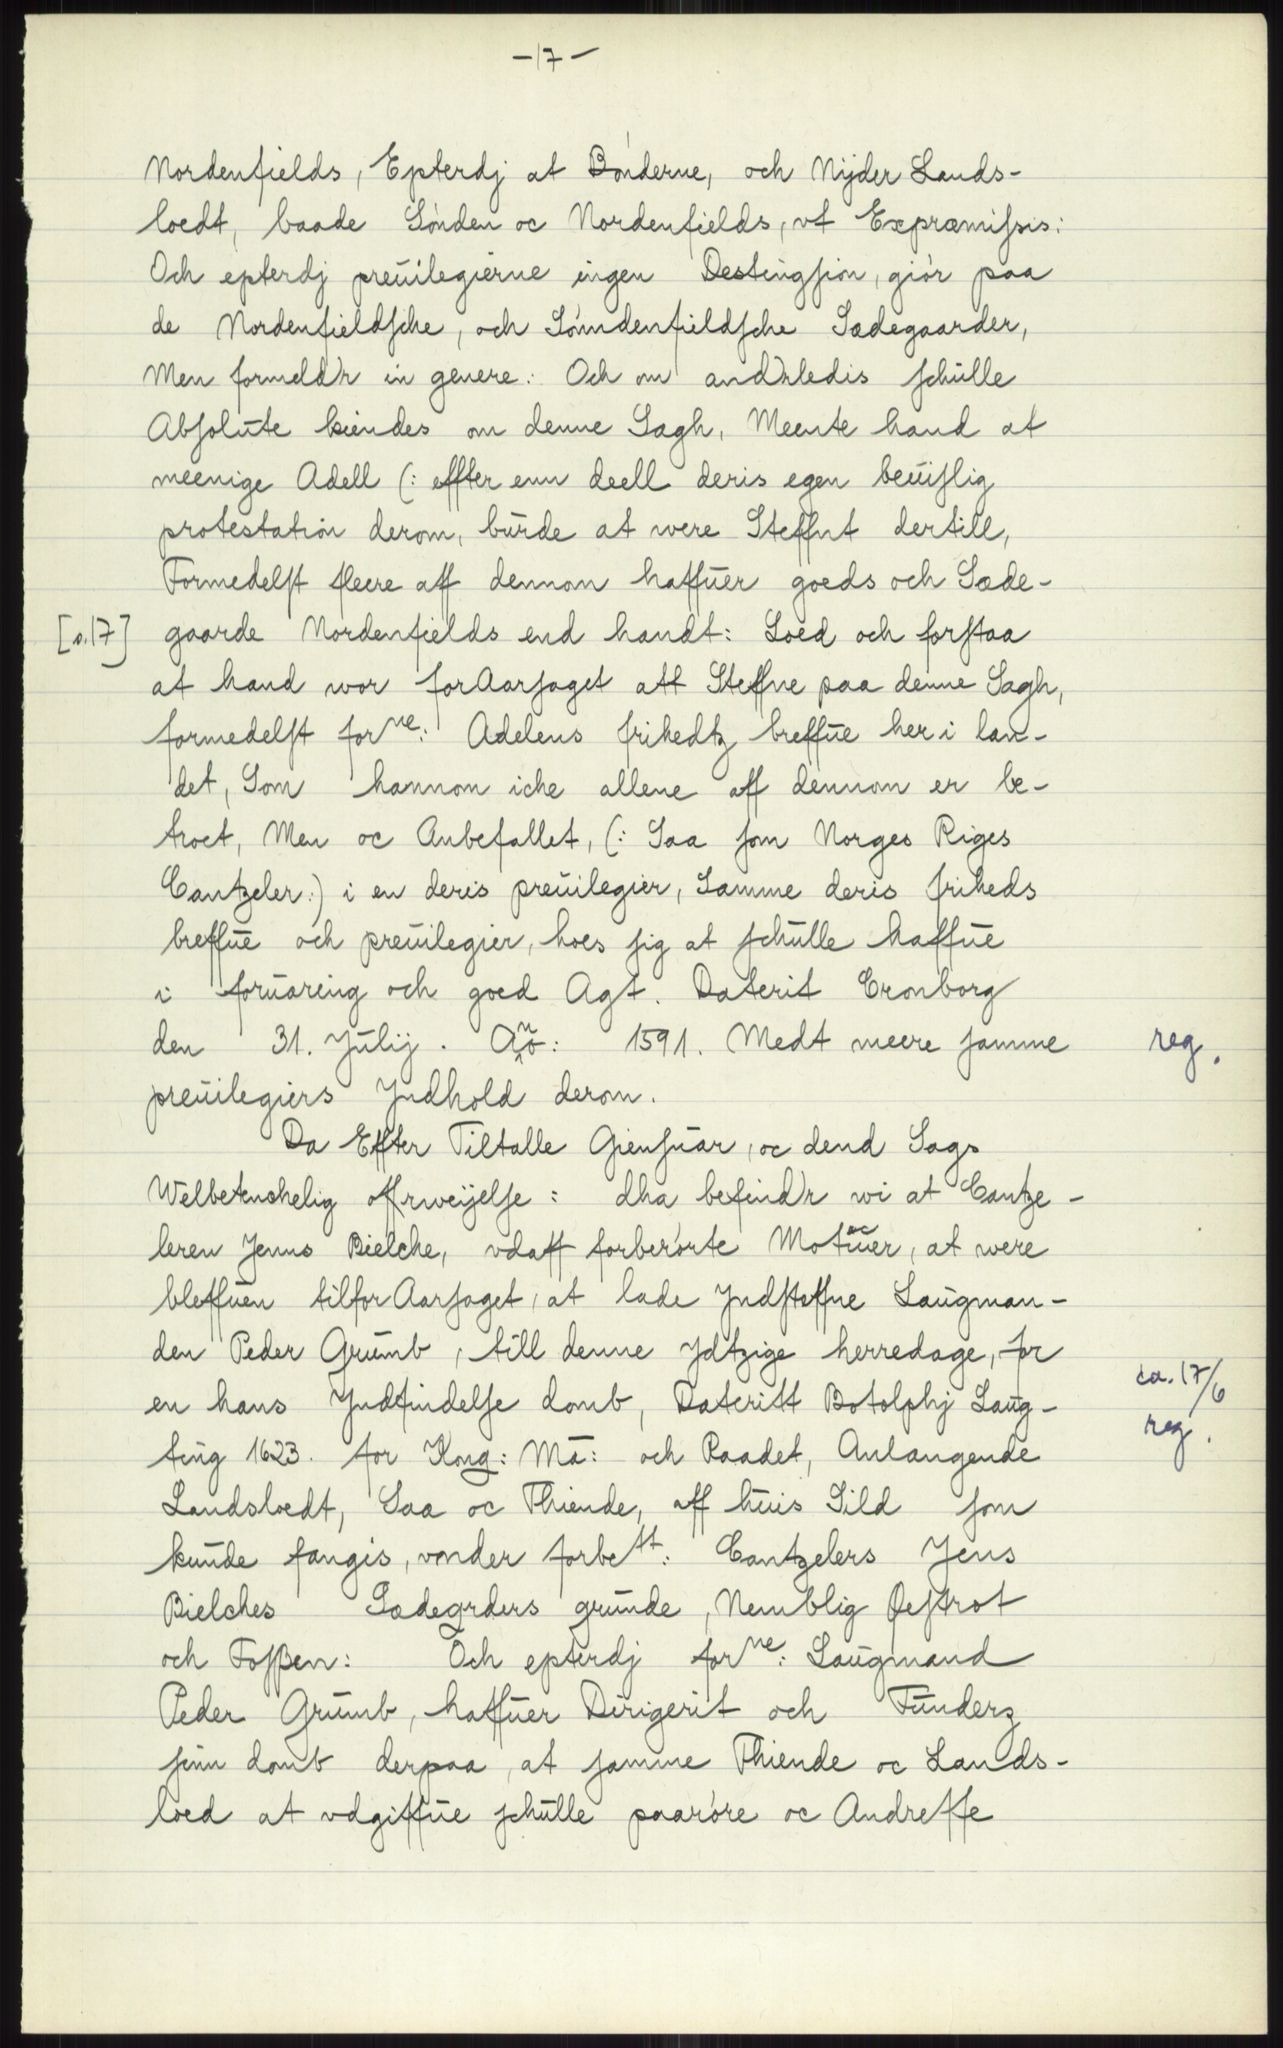 -17-
Nordenfields, Epterdj at Bónderne, och Nijder Lands-
loedt, baade Sónden oc Nordenfields, vt Expræmissis:
Och epterdj preuilegierne ingen Destingsion, giór paa
de Nordenfieldsche, och Sómdenfieldsche Sædegaarder,
Men formeld'r in genere: Och om and'rledis schulle
Absolute kiendes om denne Sagh, Meente hand at
meenige Adell (: effter enn deell deris egen beuislig
protestation derom, burde at were Steffnt dertill,
Formedelst fleere aff dennom haffuer goeds och Sæde-
[s.17] gaarde Nordenfields end handt: Loed och forstaa
at hand wor forAarsaget att Steffne paa denne Sagh,
formedelst forne: Adelens frihedtz breffue her i lan-
det, Som hannom iche allene aff dennom er be-
troet, Men oc Anbefallet, (: Saa som Norges Riges
Cantzeler:) i en deris preuilegier, Samme deris friheds
breffue och preuilegier, hoes sig at schulle haffue
i foruaring och goed Agt. Daterit Cronborg
den 31. Julij. Año: 1591. Medt meere samme reg.
preuilegiers Jndhold derom.
Da Effter Tiltalle Giensuar, oc dend Sags
Welbetenchelig offrweijelse: dha befind'r wi at Cantze-
leren Jenns Bielche, vdaff forberórte Motiuer, at were
bleffuen tilforAarsaget, at lade Jndsteffne Laugman-
den Peder Grumb, till denne Jdtzige herredage, for
ca. 17/6
en hans Jndfindelse domb, Dateritt Botolphj Laug-
reg.
ting 1623. for Kong: Ma: och Raadet, Anlangende
Landsloedt, Saa oc Thiende, aff huis Sild som
kunde fangis, vonder forbett: Cantzelers Jens
Bielches Sædegrders grunde, Nemblig Østrot
och Fossen: Och epterdj forne: Laugmand
Peder Grumb, haffuer Dirigerit och Funderz
sinn domb derpaa, at samme Thiende oc Lands-
loed at vdgiffue schulle paaróre oc Andreffe